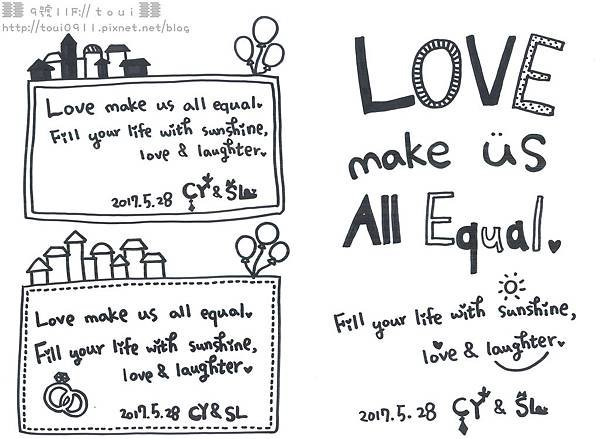 9號11F// toui
http://toui0911.pixnet.net/blog
Love make us all equal.
Fill your life with sunshine,
love & laughter.
2017.5.28 CY & SL
Love make us all equal.
Fill your life with sunshine,
love & laughter.
2017.5.28 CY & SL
LOVE
make üs
All Equal.
Fill your life with sunshine,
love & laughter.
2017.5.28 CY & SL